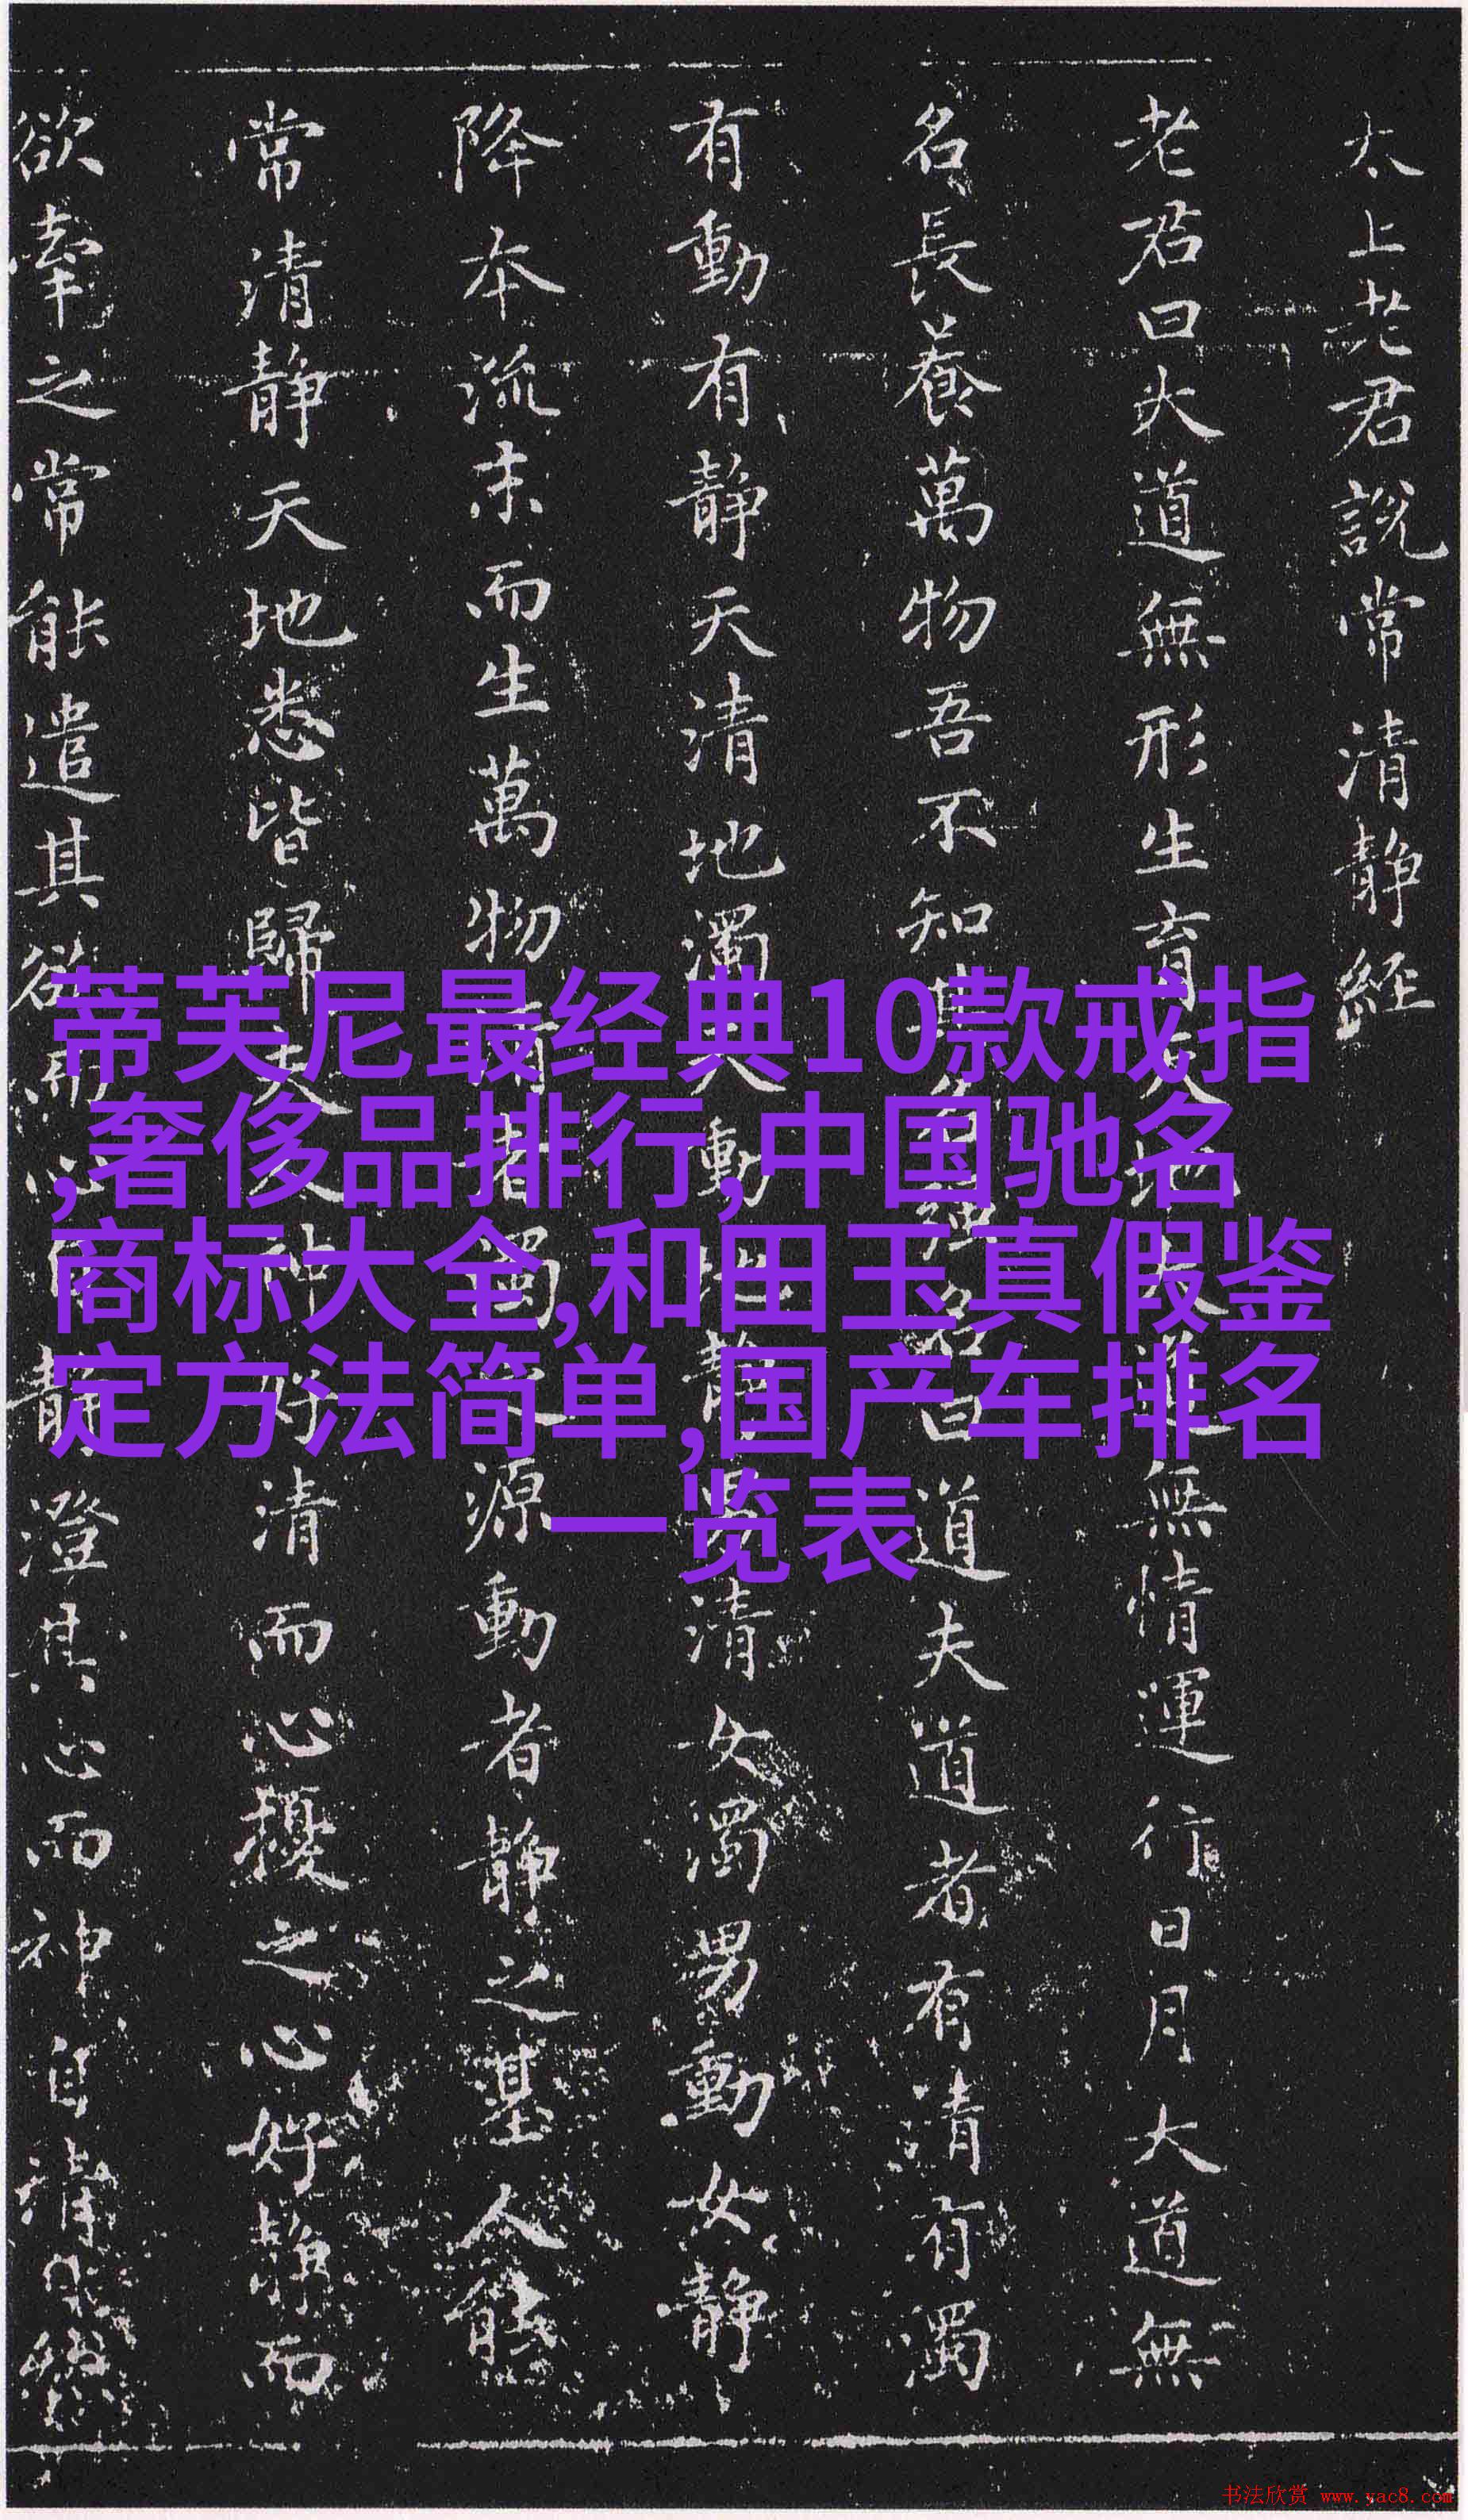 太上老君說常清静経
老君曰大道無形生育天地大道無情運行日月大道無
名長養萬物吾不知其名強名曰道夫道者有清有濁
有動有静天清地濁天動地静男清女濁男動女静
降本流末而生萬物清者濁之源動者静之基人能
常清静天地悉皆歸夫人神好清而心擾之心好静而
欲牽之常能遣其欲而心自静澄其心而神自清
蒂芙尼最经典10款戒指
,奢侈品排行,中国驰名
商标大全,和田玉真假鉴
定方法简单,国产车排名
一览表
书法欣赏 www.yac8.com